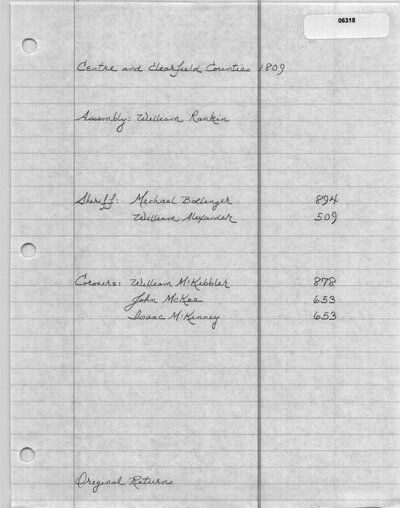 06318
Centre and Clearfield Counties 1809
Assembly: William Rankin
Sheriff: Michael Bollinger 894
William Alexander 509
Coroners: William McKibbler 878
John McKee 653
Isaac McKinney 653
Original Returns